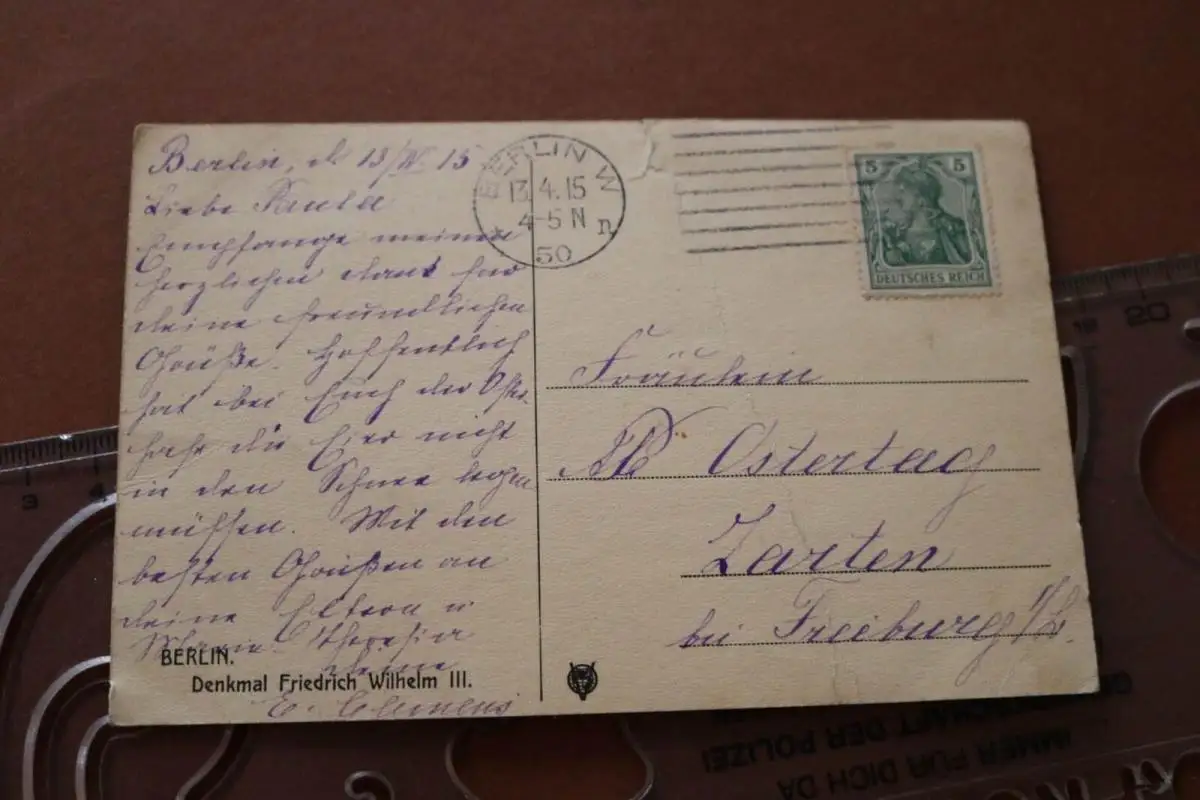 Berlin, d 13/IV 15
Liebe
Empfange meinen
herzlichen dank für
deine freundlichen
Grüße. Hoffentlich
hat bei Euch der Oster-
hase die Eier nicht
in den Schnee legen
müssen. Mit den
besten Grüßen an
deine Eltern u
Theresia
deine
E. Clemens
BERLIN.
Denkmal Friedrich Wilhelm III.
BERLIN W
13.4.15
4-5 N
* 50 n
5 5
DEUTSCHES REICH
Fräulein
Ostertag
Zarten
bei Freiburg i/B.
3 4
19 20
IMMER FÜR DICH DA
DER POLIZEI